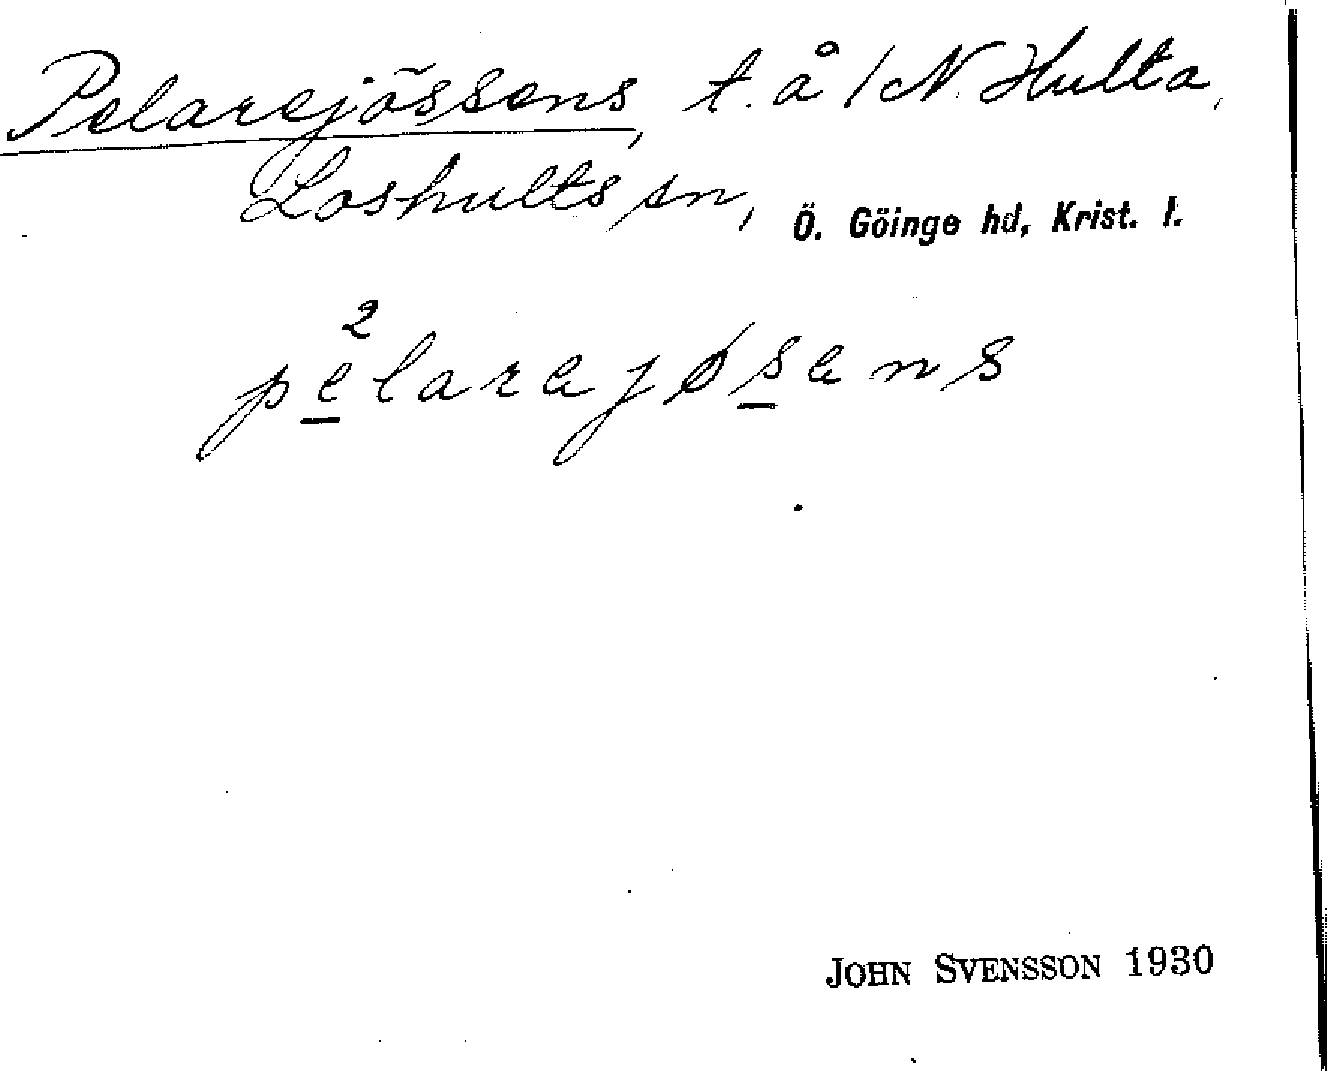 Pelarejössens, t. å /N. Hulta,
Loshults sn, Ö. Göinge hd, Krist. l.
2
pelarajøsans
JOHN SVENSSON 1930